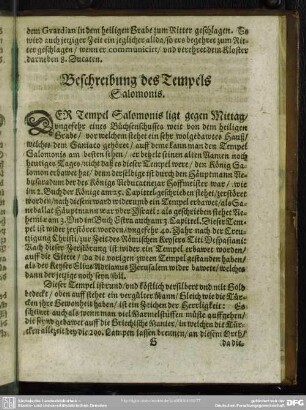 dem Gvardian in dem heiligen Grabe zum Ritter geschlagen. Es
wird auch jetziger Zeit ein jeglicher allda/ so er es begehret zum Rit-
ter geschlagen/ wenn er communiciret/ vnd verehret dem Kloster
darneben 8. Ducaten.
Beschreibung des Tempels
Salomonis.
DER Tempel Salomonis ligt gegen Mittag/
vngefehr eines Büchsenschusses weit von dem heiligen
Grabe/ vor welchem stehet ein sehr wolgebawtes Hauß/
welches dem Saniaco gehöret/ auff deme kann man den Tempel
Salomonis am besten sehen/ er behelt seinen alten Namen noch
heutiges Tages/ nicht daß es dieser Tempel were/ den König Sa-
lomon erbawet hat/ denn derselbige ist durch den Hauptmann Ne-
busaradam des Königs Nebucatnezar Hoffmeister war/ wie
im 2. Buch der Könige am 25. Capittel geschrieben stehet/ zerstöret
worden/ nach diesem ward widerumb ein Tempel erbawet/ als Sa-
neballat Hauptmann war
hemia am 3. Vnd im Buch Esra am andern Capittel. Dieser Tem-
pel ist wider zerstöret worden/ vngefehr 40. Jahr nach der Creu-
tzigung Christi/ zur Zeit des Römischen Keysers Titi Vespasiani:
Nach dieser Zerstörung ist wider ein Tempel erbawet worden/
auff die Stette/ da die vorigen zween Tempel gestanden haben/
als der Keyser Elius Adrianus Jerusalem wider bawete/ welches
dann der jetzige noch seyn soll.
Dieser Tempel ist rund/ vnd köstlich versilbert vnd mit Gold
bedeckt/ oben auff stehet ein vergülter Mann/ Gleich wie die Tür-
cken ihre Gewonheit haben/ ist ein Zeichen der Herrligkeit: Es
scheinet auch als wenn man viel Marmelstuffen müste auffgehen/
die seynd gebawet auff die Griechische Manier/ in welchen die Tür-
cken allezeit bey die 200. Lampen lassen brennen/ an diesem Orth/
G da die